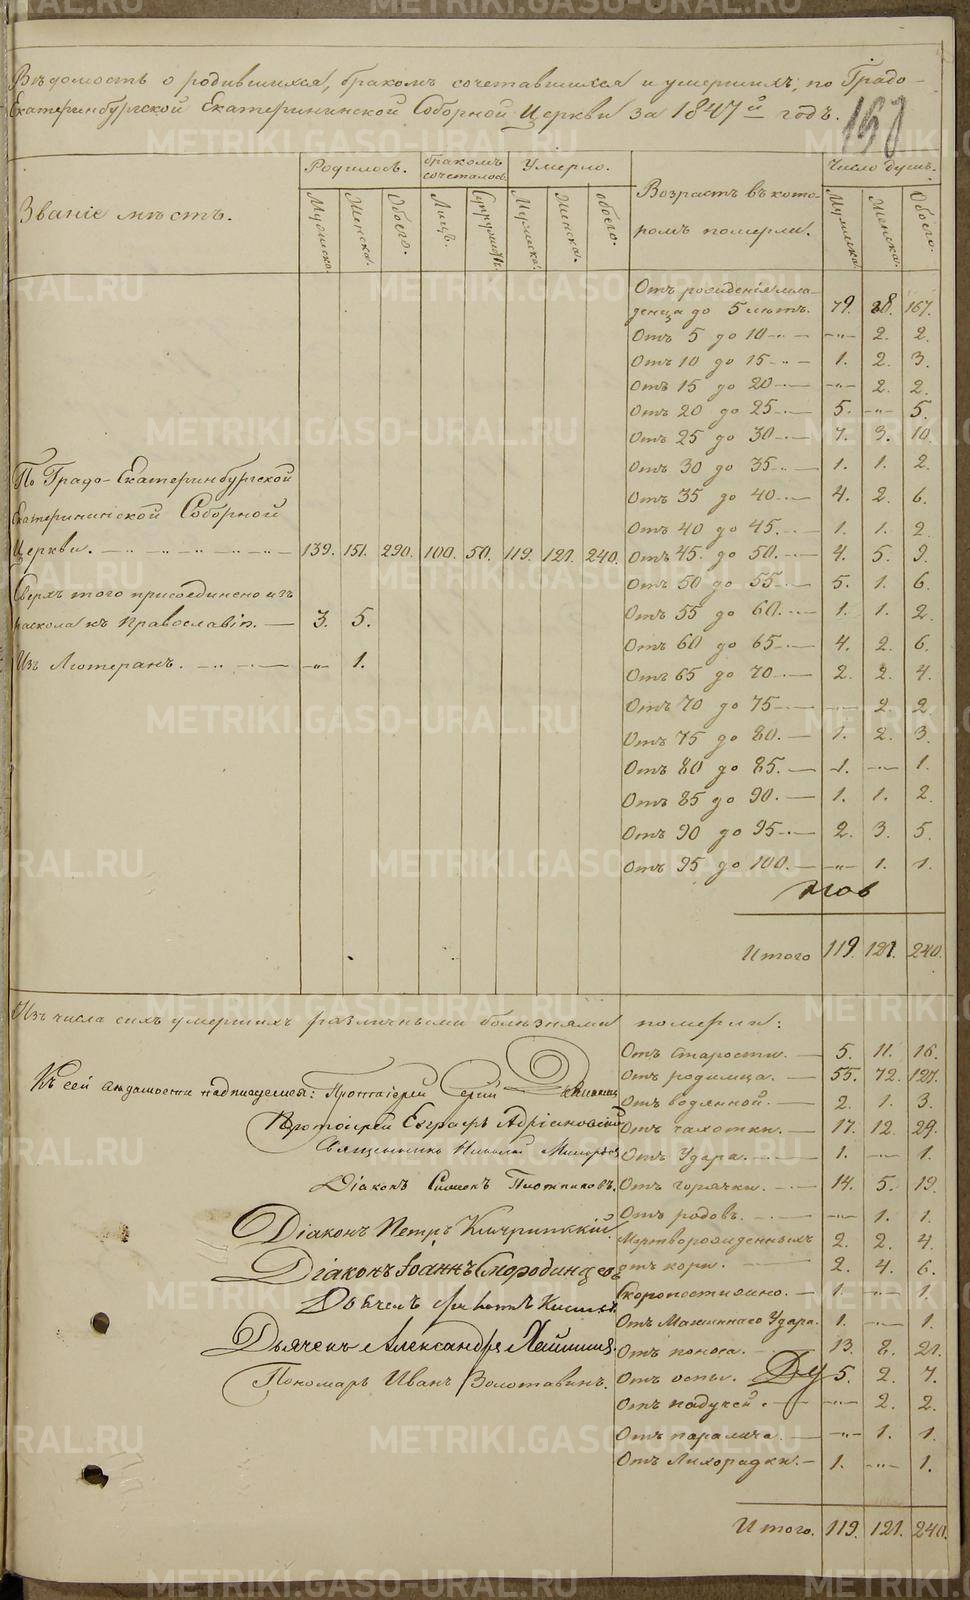 Вѣдомость о родившихся, бракомъ сочетавшихся и умершихъ, по Градо-
Екатеринбургской Екатерининской Соборной Церкви за 1847й годъ.
150
Званіе мѣстъ.
Родилось.
бракомъ сочеталось
Умерло.
Возрастъ въ кото-
ромъ померли.
Число душъ.
Мужеска. Женска. Обоего. Лицъ. Супружествъ Мужеска. Женска. обоего. Мужеска Женска. Обоего.
Отъ рожденія мла-
денца до 5 лѣтъ. 79. 88. 167.
Отъ 5 до 10 — „ — 2. 2.
Отъ 10 до 15 — 1. 2. 3.
Отъ 15 до 20 — „ — 2. 2.
Отъ 20 до 25 — 5. „ 5.
Отъ 25 до 30 — 7. 3. 10.
Отъ 30 до 35 — 1. 1. 2.
Отъ 35 до 40 — 4. 2. 6.
Отъ 40 до 45 — 1. 1. 2.
Отъ 45 до 50. — 4. 5. 9.
Отъ 50 до 55 — 5. 1. 6.
Отъ 55 до 60. — 1. 1. 2.
Отъ 60 до 65 — 4. 2. 6.
Отъ 65 до 70 — 2. 2. 4.
Отъ 70 до 75 — 2. 2
Отъ 75 до 80. — 1. 2. 3.
Отъ 80 до 85. — 1. „ 1.
Отъ 85 до 90. — 1. 1. 2.
Отъ 90 до 95 — 2. 3. 5.
Отъ 95 до 100. — „ 1. 1.
Итого 119. 121. 240.
По Градо-Екатеринбургской
Екатерининской Соборной
Церкви. — 139. 151. 290. 100. 50. 119. 121. 240.
Сверхъ того присоединено изъ
раскола къ Православію. — 3. 5.
Изъ Лютеранъ. — „ 1.
Изъ числа сихъ умершихъ различными болѣзнями померли:
Отъ старости. — 5. 11. 16.
Отъ родимца. — 55. 72. 127.
Отъ водянной. — 2. 1. 3.
Отъ чахотки. — 17. 12. 29.
Отъ Удара. — 1. „ 1.
Отъ горячки. — 14. 5. 19.
Отъ родовъ. — „ 1. 1.
Мертворожденныхъ 2. 2. 4.
отъ кори. — 2. 4. 6.
Скоропостижно. — 1. „ 1.
Отъ Машиннаго Удара. 1. „ 1.
Отъ поноса. — 13. 8. 21.
Отъ оспы. 5. 2. 7.
Отъ падучей. — „ 2. 2.
Отъ паралича. — „ 1. 1.
Отъ Лихорадки. — 1. „ 1.
Итого. 119. 121. 240.
Къ сей вѣдомости подписуемся: Протоіерей
Протоіерей Евграфъ Адріановскій
Священникъ Николай
Діаконъ Симеонъ Плотниковъ.
Діаконъ Петръ
Діаконъ Іоаннъ Смородинцовъ
Дьячекъ
Дьячекъ Александръ
Пономарь Иванъ Золотавинъ.
METRIKI.GASO-URAL.RU